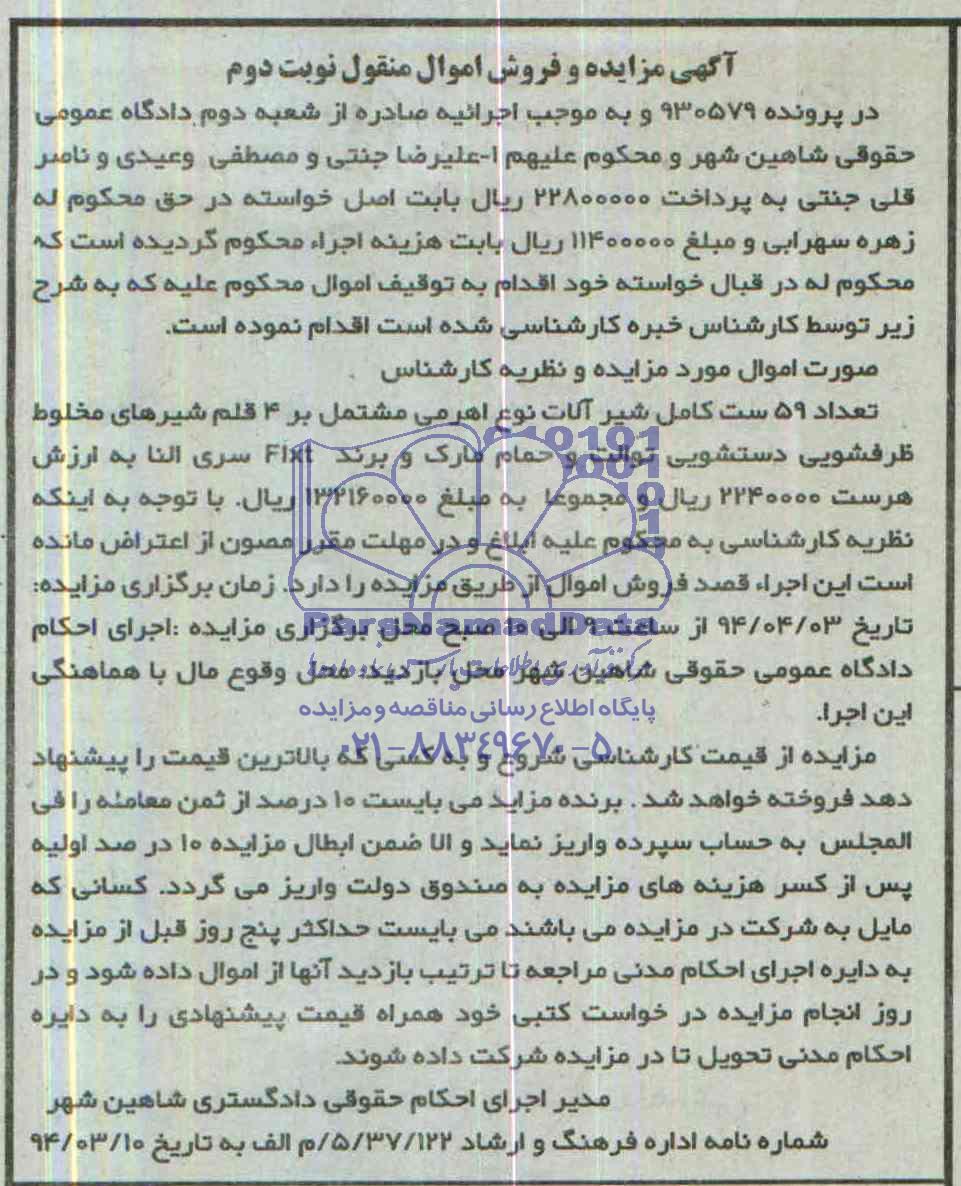 آگهی مزایده و فروش اموال منقول نوبت دوم
در پرونده ۹۳۰۵۷۹ و به موجب اجرائیه صادره از شعبه دوم دادگاه عمومی
حقوقی شاهین شهر و محکوم علیهم ۱-علیرضا جنتی و مصطفی وعیدی و ناصر
قلی جنتی به پرداخت ۲۲۸۰۰۰۰۰ ریال بابت اصل خواسته در حق محکوم له
زهره سهرابی و مبلغ ۱۱۴۰۰۰۰۰ ریال بابت هزینه اجراء محکوم گردیده است که
محکوم له در قبال خواسته خود اقدام به توقیف اموال محکوم علیه که به شرح
زیر توسط کارشناس خبره کارشناسی شده است اقدام نموده است.
صورت اموال مورد مزایده و نظریه کارشناس
تعداد ۵۹ ست کامل شیر آلات نوع اهرمی مشتمل بر ۴ قلم شیرهای مخلوط
ظرفشویی دستشویی توالت و حمام مارک و برند FIxt سری النا به ارزش
هرست ۲۲۴۰۰۰۰ ریال و مجموعا به مبلغ ۱۳۲۱۶۰۰۰۰ ریال. با توجه به اینکه
نظریه کارشناسی به محکوم علیه ابلاغ و در مهلت مقرر مصون از اعتراض مانده
است این اجراء قصد فروش اموال از طریق مزایده را دارد. زمان برگزاری مزایده:
تاریخ ۹۴/۰۴/۰۳ از ساعت ۹ الی ۱۰ صبح محل برگزاری مزایده :اجرای احکام
ParsNamadData
دادگاه عمومی حقوقی شاهین شهر محل بازدید: محل وقوع مال با هماهنگی
این اجرا.
پایگاه اطلاع رسانی مناقصه و مزایده
۰۲۱-۸۸۳۴۹۶۷۰-۵
مزایده از قیمت کارشناسی شروع و به کسی که بالاترین قیمت را پیشنهاد
دهد فروخته خواهد شد . برنده مزاید می بایست ۱۰ درصد از ثمن معامله را فی
المجلس به حساب سپرده واریز نماید و الا ضمن ابطال مزایده ۱۰ در صد اولیه
پس از کسر هزینه های مزایده به صندوق دولت واریز می گردد. کسانی که
مایل به شرکت در مزایده می باشند می بایست حداکثر پنج روز قبل از مزایده
به دایره اجرای احکام مدنی مراجعه تا ترتیب بازدید آنها از اموال داده شود و در
روز انجام مزایده در خواست کتبی خود همراه قیمت پیشنهادی را به دایره
احکام مدنی تحویل تا در مزایده شرکت داده شوند.
مدیر اجرای احکام حقوقی دادگستری شاهین شهر
شماره نامه اداره فرهنگ و ارشاد ۵/۳۷/۱۲۲/م الف به تاریخ ۹۴/۰۳/۱۰